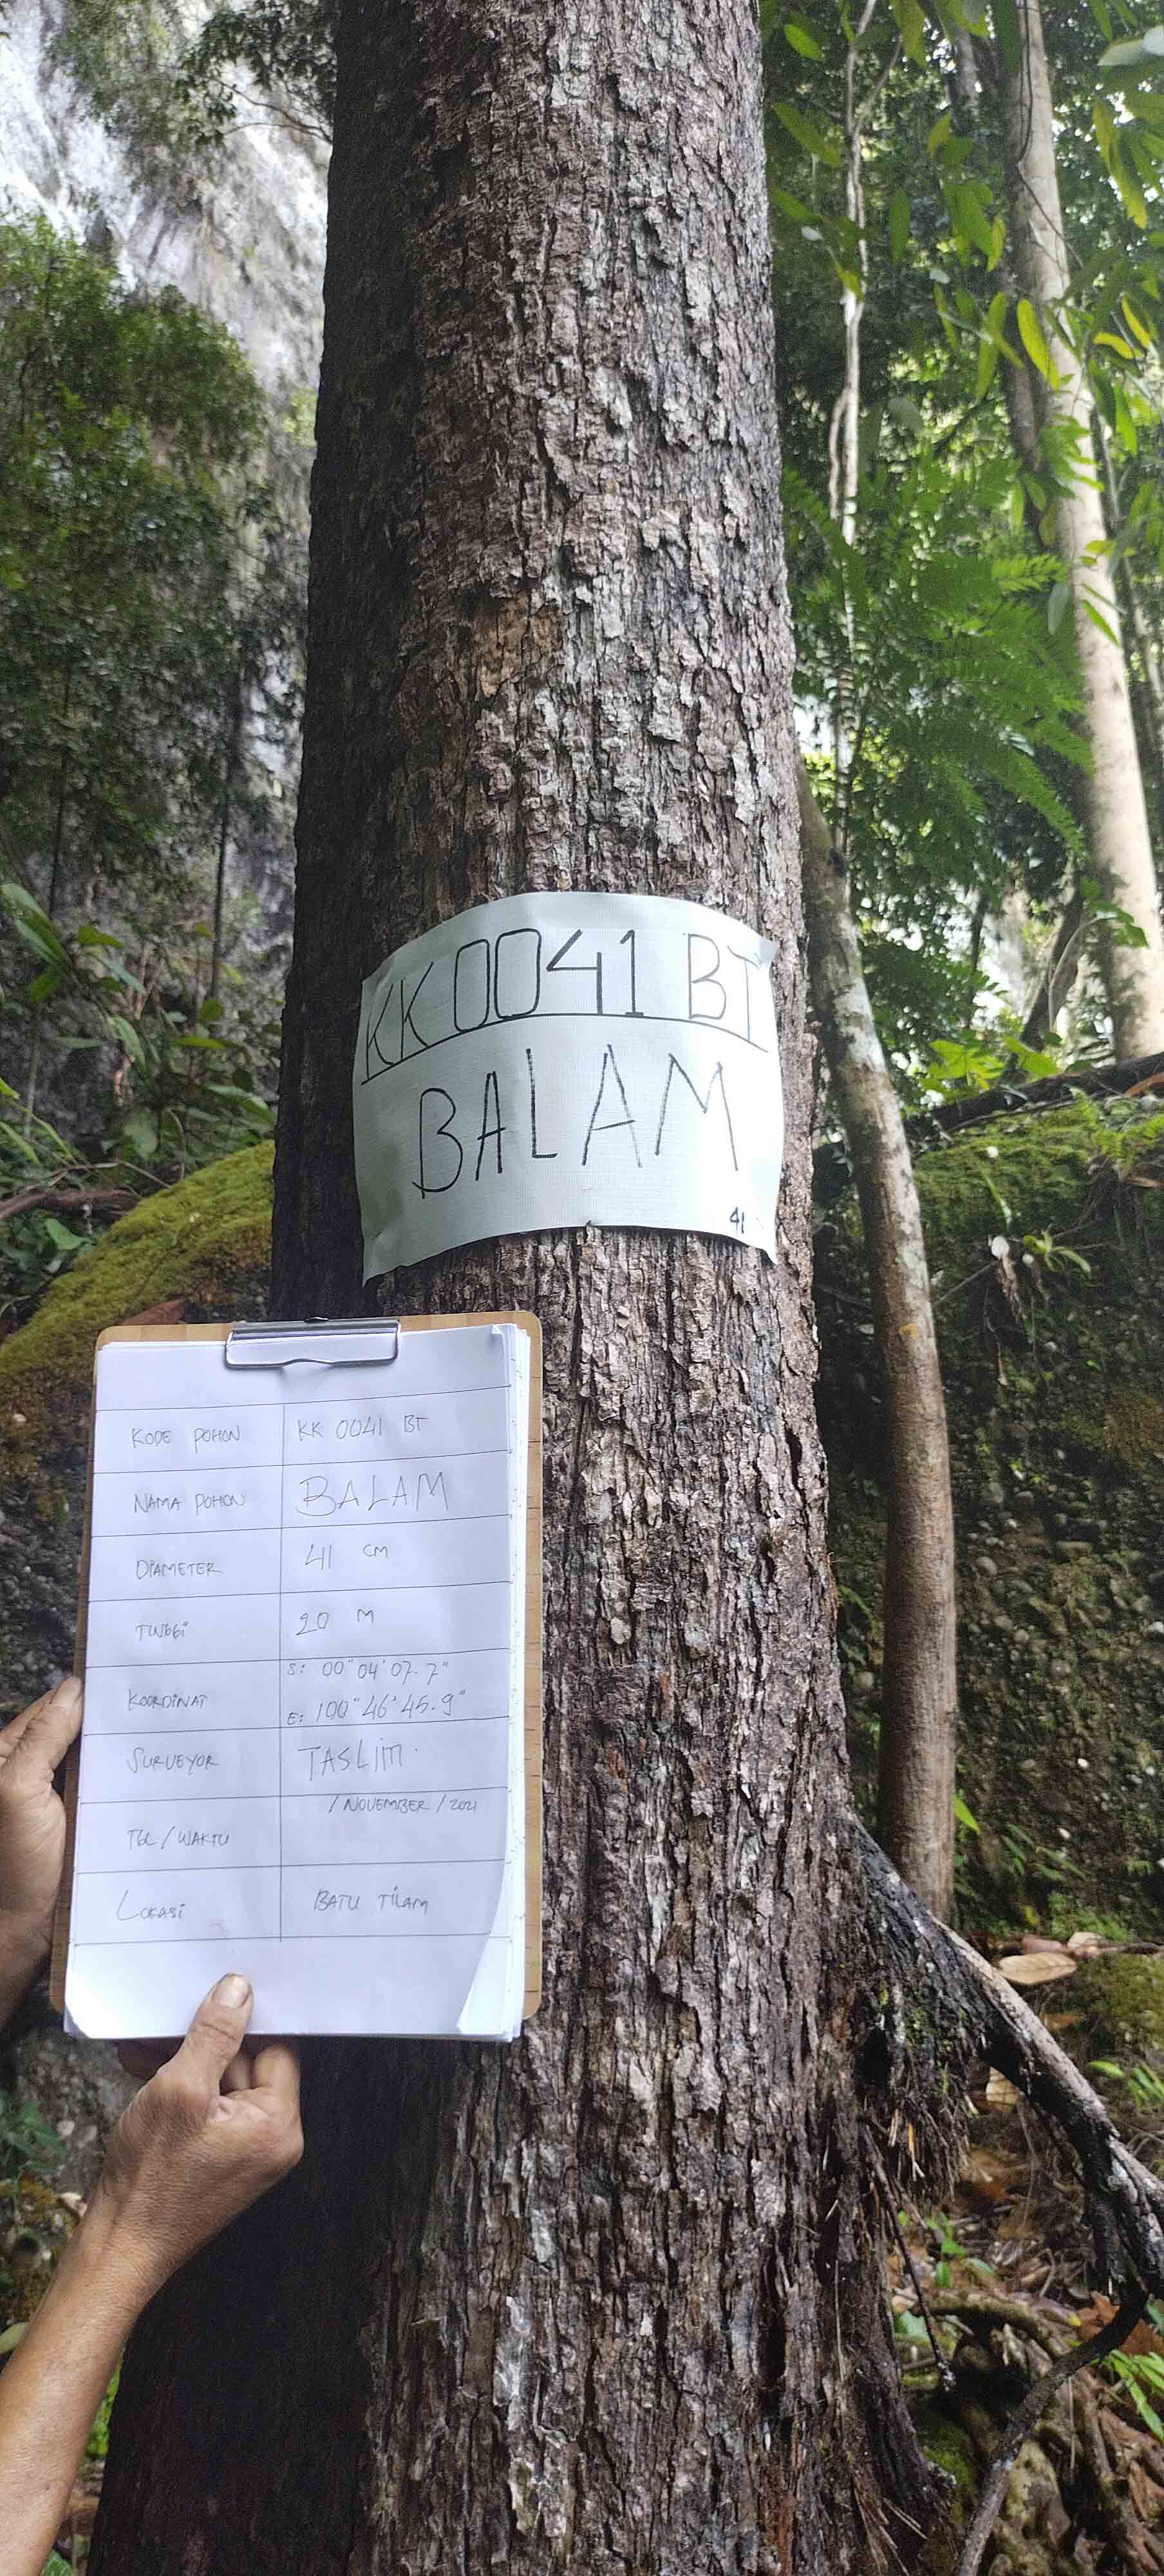 KK0041 BT
BALAM
41
KODE POHON KK 0041 BT
NAMA POHON BALAM
DIAMETER 41 CM
TINGGI 20 M
KOORDINAT S: 00° 04' 07.7"
E: 100° 46' 45.9"
SURVEYOR TASLIM.
TGL/WAKTU / NOVEMBER / 2021
LOKASI BATU TILAM